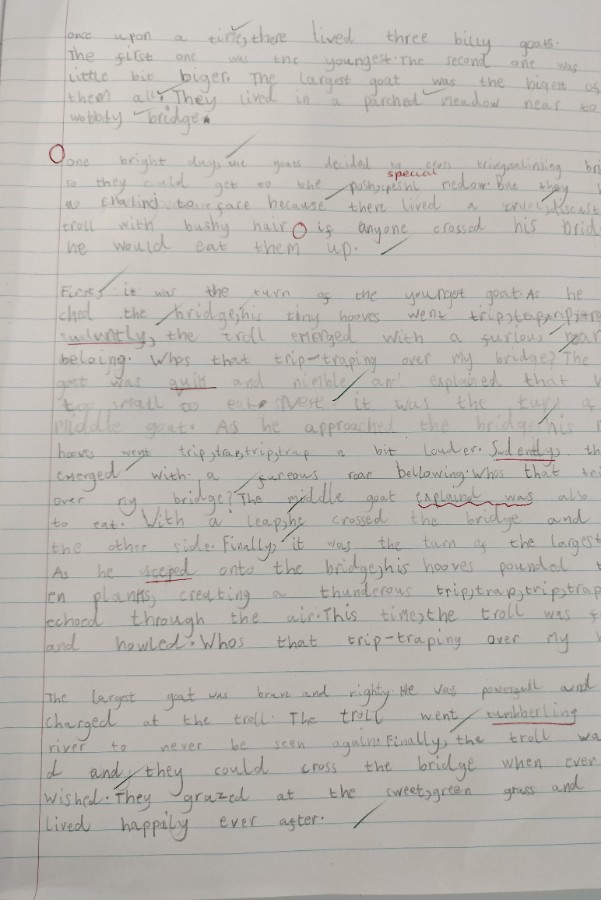 once upon a time, there lived three billy goats.
The first one was the youngest. The second one was
little bit biger. The largest goat was the bigest of
them all. They lived in a parched meadow near to
wobbly bridge.
one bright day, the goats decided to cross
special
so they could get to the they
because there lived a
troll with bushy hair is anyone crossed his brid
he would eat them up.
First, it was the turn of the youngest goat. As he
ched the bridge, his tiny hooves went trip, trap, trip, tra
the troll emerged with a furious roar
beloing. Whos that trip-traping over my bridge? The
goat was quik and nimble and explained that
too small to eat. Next it was the turn of
middle goat. As he approached the bridge, his
hooves went trip, trap, trip, trap a bit louder. Sudently, th
emerged with a fureous roar bellowing. Whos that tri
over my bridge? The middle goat explaind was also
to eat. With a leap, he crossed the bridge and
the other side. Finally, it was the turn of the largest
As he steeped onto the bridge, his hooves pounded t
en planks, creating a thunderous trip, trap, trip, trap
echoed through the air. This time, the troll was
and howled. Whos that trip-traping over my
The largest goat was brave and mighty. He was powerull and
charged at the troll. The troll went tumbberling
river to never be seen again. Finally, the troll wa
d and they could cross the bridge when ever
wished. They grazed at the sweet, green grass and
lived happily ever after.